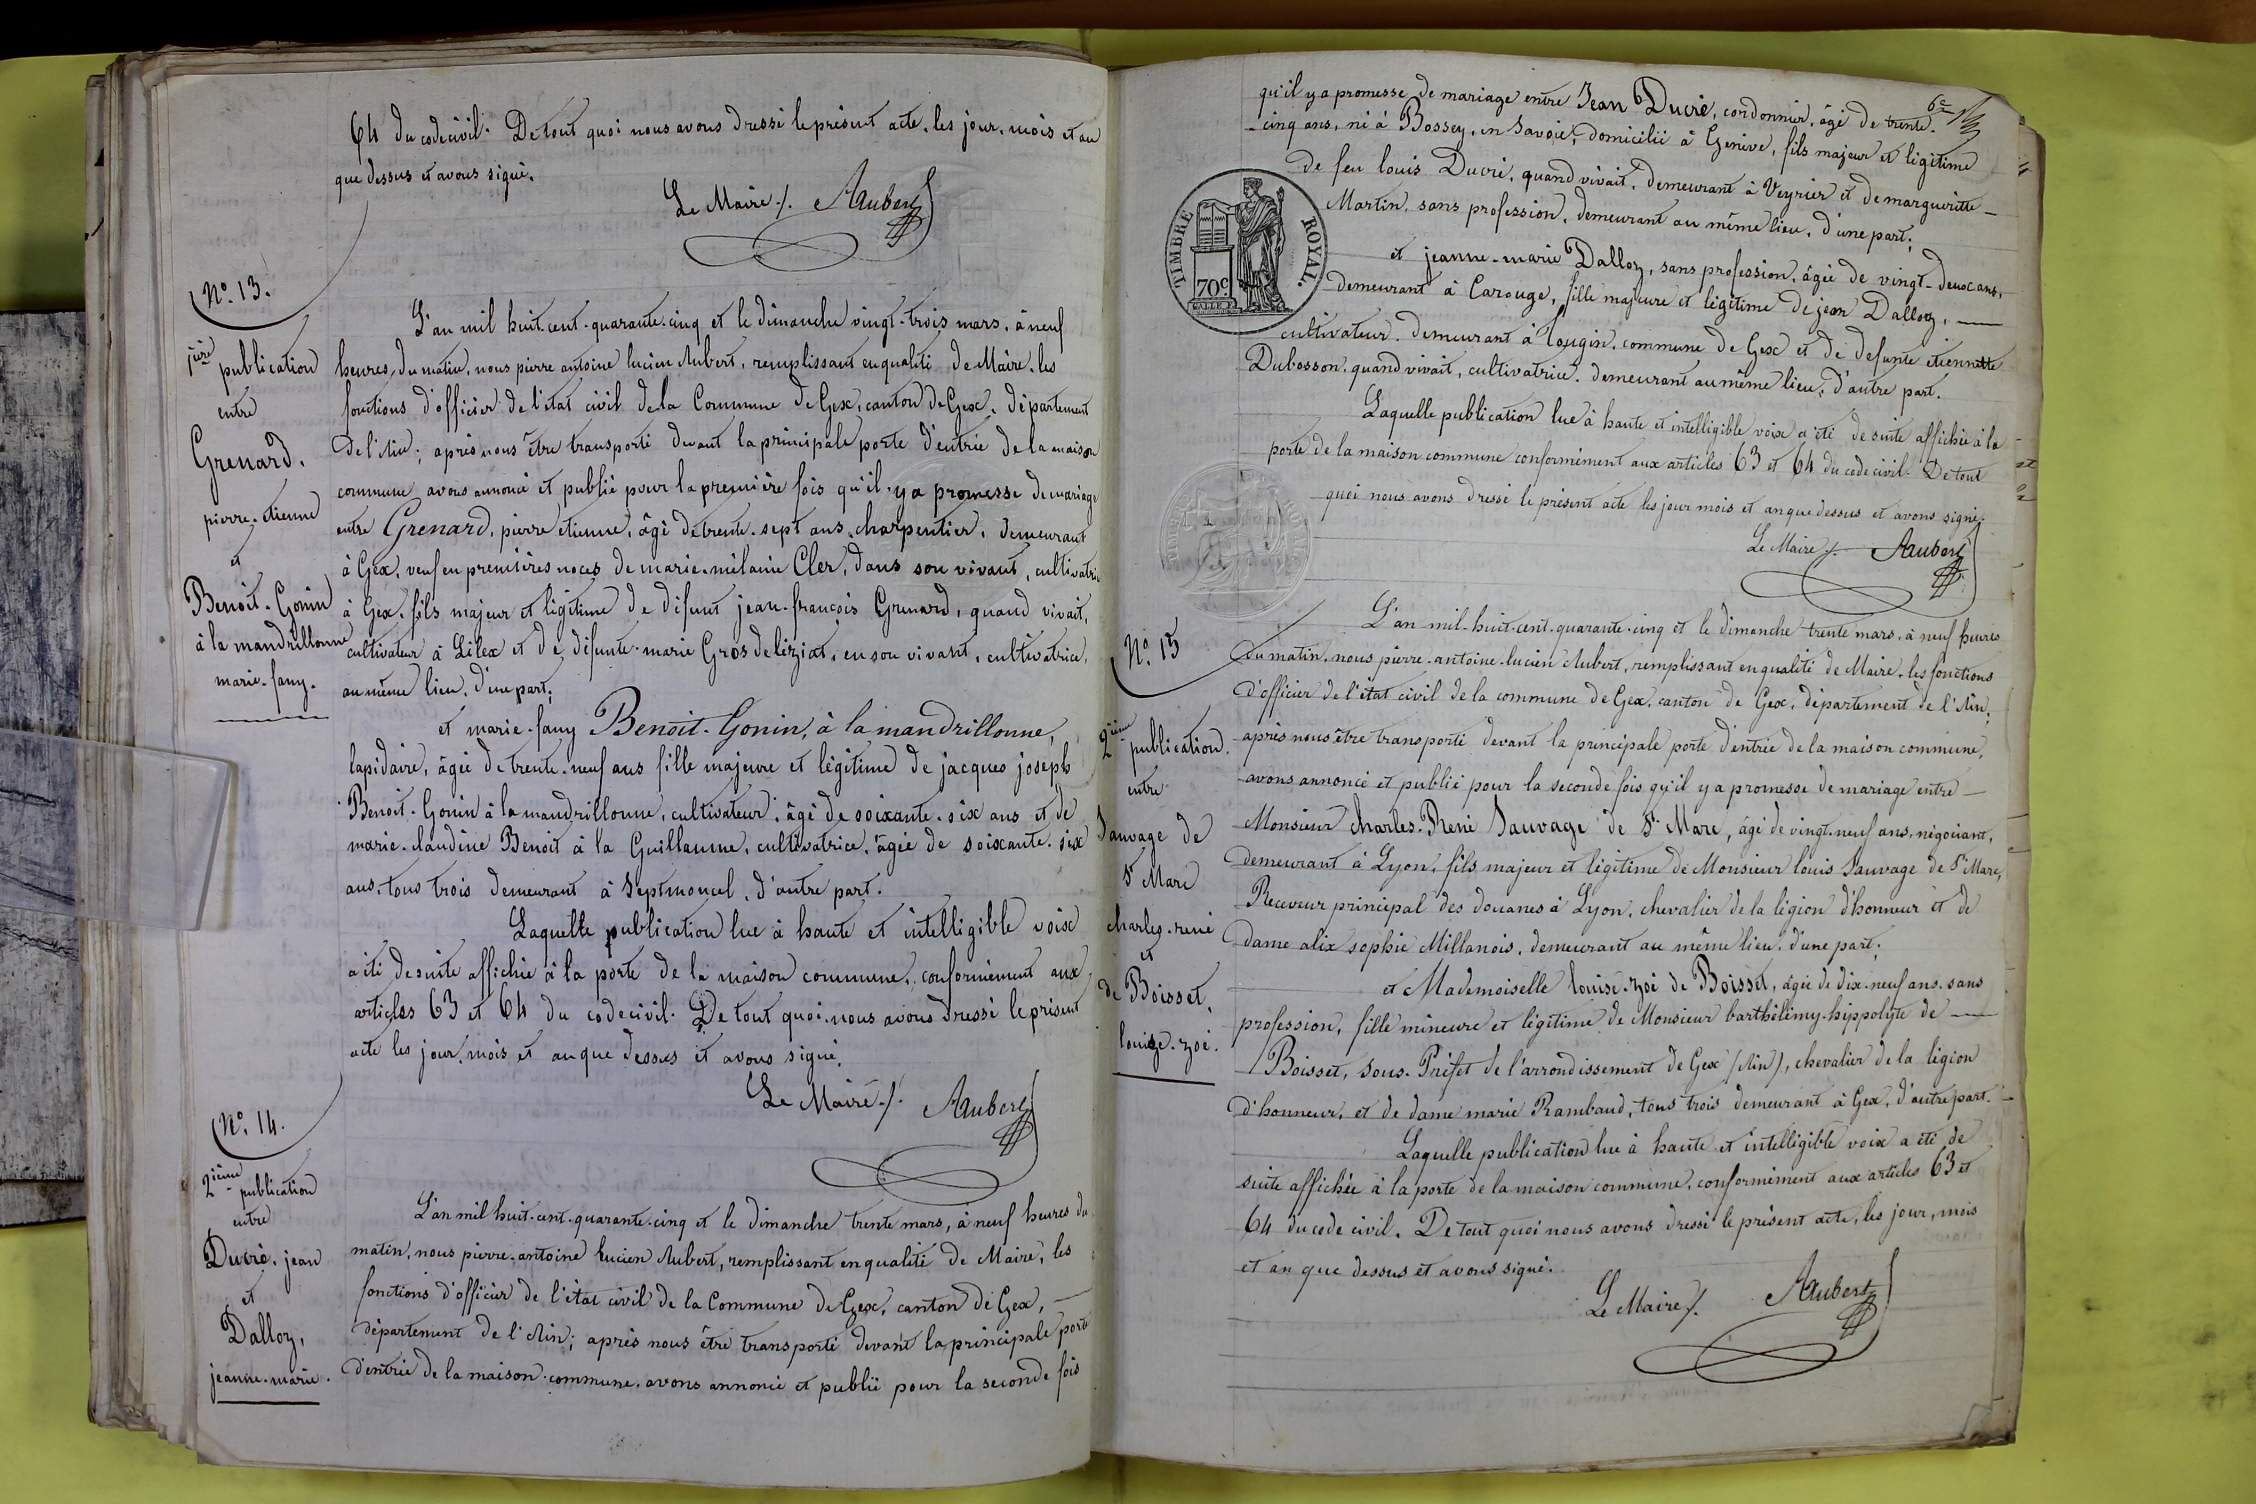 64 du code civil. De tout quoi nous avons dressé le présent acte, les jour, mois et an
que dessus et avons signé.
Le Maire /. AAubert
No. 13.
1ière publication
entre
Grenard,
pierre-étienne
et
Benoit-Gonin
à la mandrillonne
marie-fany.
L'an mil huit-cent-quarante-cinq et le dimanche vingt-trois mars, à neuf
heures du matin, nous pierre antoine lucien Aubert, remplissant en qualité de Maire, les
fonctions d'officier de l'état civil de la Commune de Gex, canton de Gex, département
de l'Ain; après nous être transporté devant la principale porte d'entrée de la maison
commune avons annoncé et publié pour la première fois qu'il y a promesse de mariage
entre Grenard, pierre etienne, âgé de trente-sept ans, charpentier, demeurant
à Gex, veuf en premières noces de marie-mélanie Cler, dans son vivant, cultivatrice
à Gex, fils majeur et légitime de défunt jean-françois Grenard, quand vivait,
cultivateur à Lilex et de défunte marie Gros de léziat, en son vivant, cultivatrice,
au même lieu, d'une part;
et marie-fany Benoit-Gonin, à la mandrillonne,
lapidaire, âgée de trente-neuf ans fille majeure et légitime de jacques joseph
Benoit-Gonin à la mandrillonne, cultivateur, âgé de soixante-six ans et de
marie-claudine Benoit à la Guillaume, cultivatrice, âgée de soixante-six
ans, tous trois demeurant à Septmoncel, d'autre part.
Laquelle publication lue à haute et intelligible voix
a été de suite affichée à la porte de la maison commune, conformément aux
articles 63 et 64 du code civil. De tout quoi nous avons dressé le présent
acte les jour, mois et an que dessus et avons signé.
Le Maire /. AAubert
No. 14.
2ième publication
entre
Ducré, jean
et
Dalloz,
jeanne-marie.
L'an mil huit-cent-quarante-cinq et le dimanche trente mars, à neuf heures du
matin, nous pierre-antoine lucien Aubert, remplissant en qualité de Maire, les
fonctions d'officier de l'état civil de la Commune de Gex, canton de Gex,
département de l'Ain; après nous être transporté devant la principale porte
d'entrée de la maison commune, avons annoncé et publié pour la seconde fois
6e
qu'il y a promesse de mariage entre Jean Ducré, cordonnier, âgé de trente-
cinq ans, né à Bossey, en Savoie, domicilié à Genève, fils majeur et légitime
de feu louis Ducré, quand vivait, demeurant à Veyrier et de marguerite
Martin, sans profession, demeurant au même lieu, d'une part;
TIMBRE ROYAL.
70c
et jeanne-marie Dalloz, sans profession, âgée de vingt-deux ans,
demeurant à Carouge, fille majeure et légitime de jean Dalloz,
cultivateur demeurant à Tougin, commune de Gex et de défunte étiennette
Dubosson, quand vivait, cultivatrice, demeurant au même lieu, d'autre part.
Laquelle publication lue à haute et intelligible voix a été de suite affichée à la
porte de la maison commune conformément aux articles 63 et 64 du code civil. De tout
quoi nous avons dressé le présent acte les jour mois et an que dessus et avons signé.
Le Maire /. AAubert
No. 15
2ième publication
entre
Sauvage de
St Marc
charles-rené
et
de Boisset,
louise-zoé.
L'an mil-huit-cent-quarante-cinq et le dimanche trente mars, à neuf heures
du matin, nous pierre-antoine-lucien Aubert, remplissant en qualité de Maire, les fonctions
d'officier de l'état civil de la commune de Gex, canton de Gex, département de l'Ain,
après nous être transporté devant la principale porte d'entrée de la maison commune,
avons annoncé et publié pour la seconde fois qu'il y a promesse de mariage entre
Monsieur Charles-René Sauvage de St Marc, âgé de vingt-neuf ans, négociant,
demeurant à Lyon, fils majeur et légitime de Monsieur louis Sauvage de St Marc,
Receveur principal des douanes à Lyon, chevalier de la légion d'honneur et de
dame alix sophie Millanois, demeurant au même lieu, d'une part;
et Mademoiselle louise-zoé de Boisset, âgée de dix-neuf ans, sans
profession, fille mineure et légitime de Monsieur barthélémy-hippolyte de
Boisset, Sous-Préfet de l'arrondissement de Gex (Ain), chevalier de la légion
d'honneur, et de dame marie Rambaud, tous trois demeurant à Gex, d'autre part.
Laquelle publication lue à haute et intelligible voix a été de
suite affichée à la porte de la maison commune, conformément aux articles 63 et
64 du code civil. De tout quoi nous avons dressé le présent acte, les jour, mois
et an que dessus et avons signé.
Le Maire /. AAubert